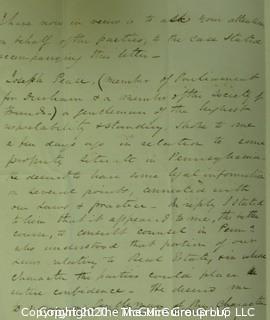 I have now in view is to ask your attention
on behalf of the parties, to the case stated
accompanying this letter—
Joseph Pease, (member of Parliament
for Durham & a member of the Society of
Friends) a gentleman of the highest
respectability & standing, spoke to me
a few days ago in relation to some
property situate in Pennsylvania
desirable have some legal information
on several points, connected with
our Laws & practice. In reply I stated
to him that it appeared to me, the better
course, to consult counsel in Penna
who understood that portion of our
laws relating to Real Estate, & in whose
character the parties could place
entire confidence. He desired me
Copyright 2020 The McGuire Group LLC